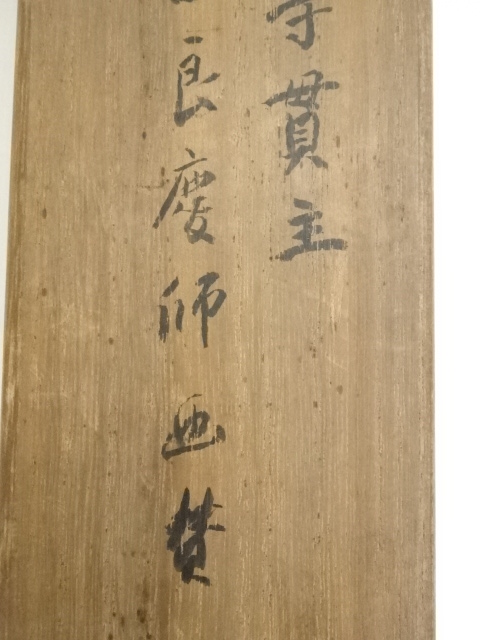 寺貫主
良慶師画賛